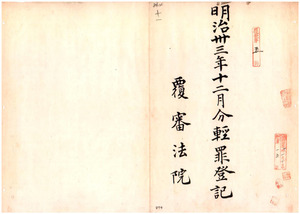 明治卅三年十二月分輕罪登記
覆審法院